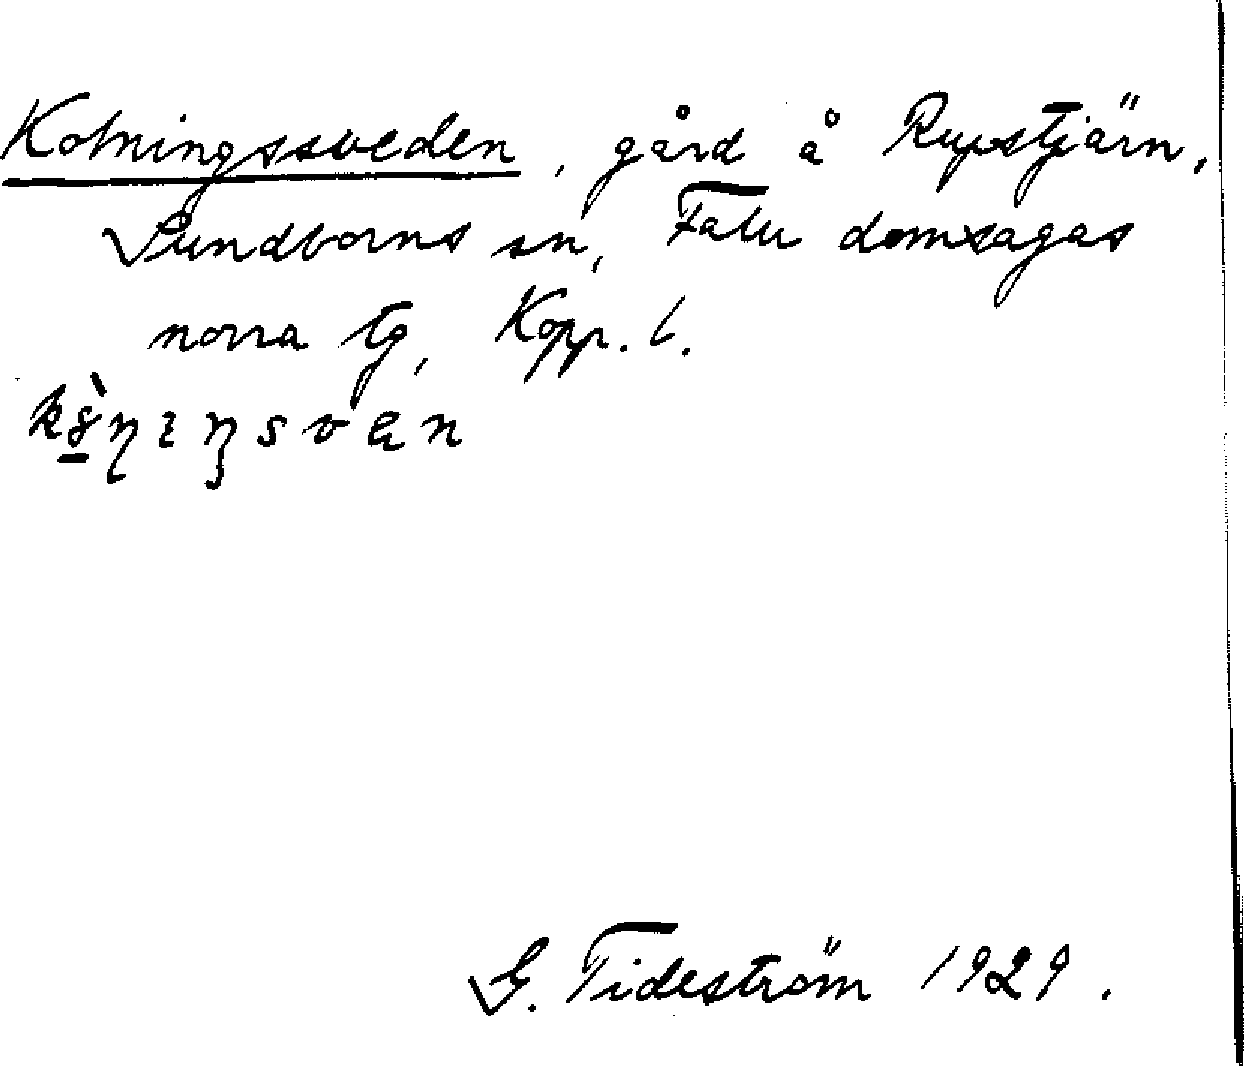 Kolningssveden, gård å Rupstjärn,
Sundborns sn, Falu domsagas
norra tg, Kopp. l.
G. Tideström 1929.